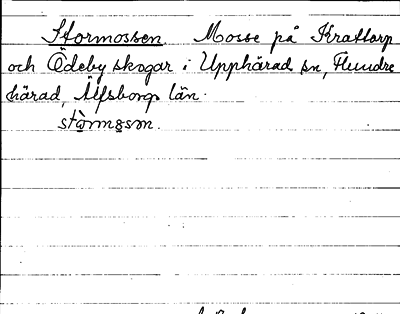 Stormossen Mosse på Krattorp
och Ödeby skogar i Upphärad sn, Flundre
härad, Älfsborgs län.